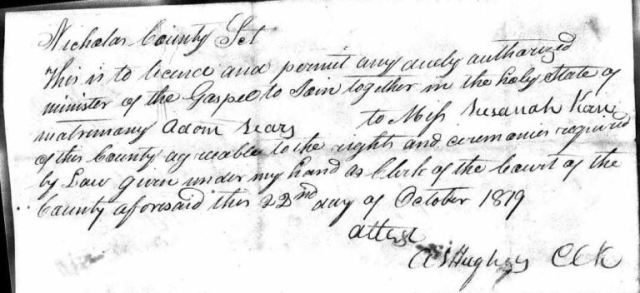 Nicholas County Sct
This is to licence and permit any duely authorized
minister of the Gospel to Join together in the holy State of
matrimony Adam Sears to Miss Susanah
of this County agreeable to the rights and ceremonies required
by Law given under my hand as Clerk of the Court of the
County aforesaid this 22nd day of October 1819
attest
Hughes CCK